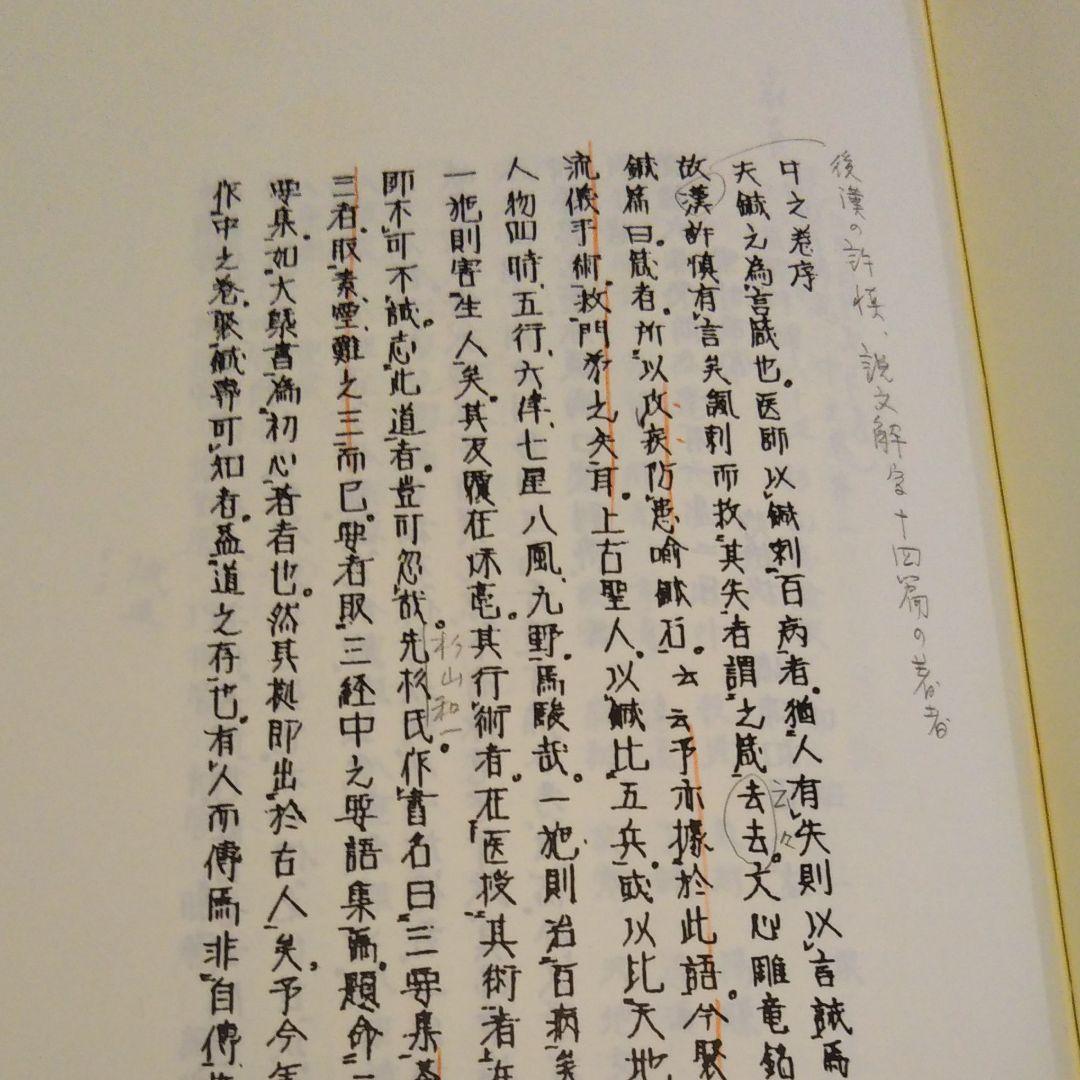 後漢の許慎、説文解字十四篇の著者
中之巻序
夫鍼之為言箴也。医師以鍼刺百病者。猶人有失則以言誡焉
故漢許慎有言矣諷刺而救其失者謂之箴去去。文心雕竜銘
云々
鍼篇曰箴者。所以攻疾防患喩鍼石。云云予亦據於此語。今聚
流儀乎術。救門弟之失耳。上古聖人。以鍼比五兵。或以比天地
人物四時、五行、六律、七星八風、九野。焉験哉。一犯則治百病矣
一犯則害生人矣。其反覆在秋毫。其行術者。在医授其術者
即不可不誠志此道者。豈可忽哉。先杉氏作書名曰三要集
杉山和一
三者。取素、霊、難之三而已。要者取三経中之要語集焉。題命
要集。如大聚書為初心者者也。然其拠即出於古人矣。予今年
作中之巻。聚鍼専可知者。益道之存也。有人而傳焉非自傳